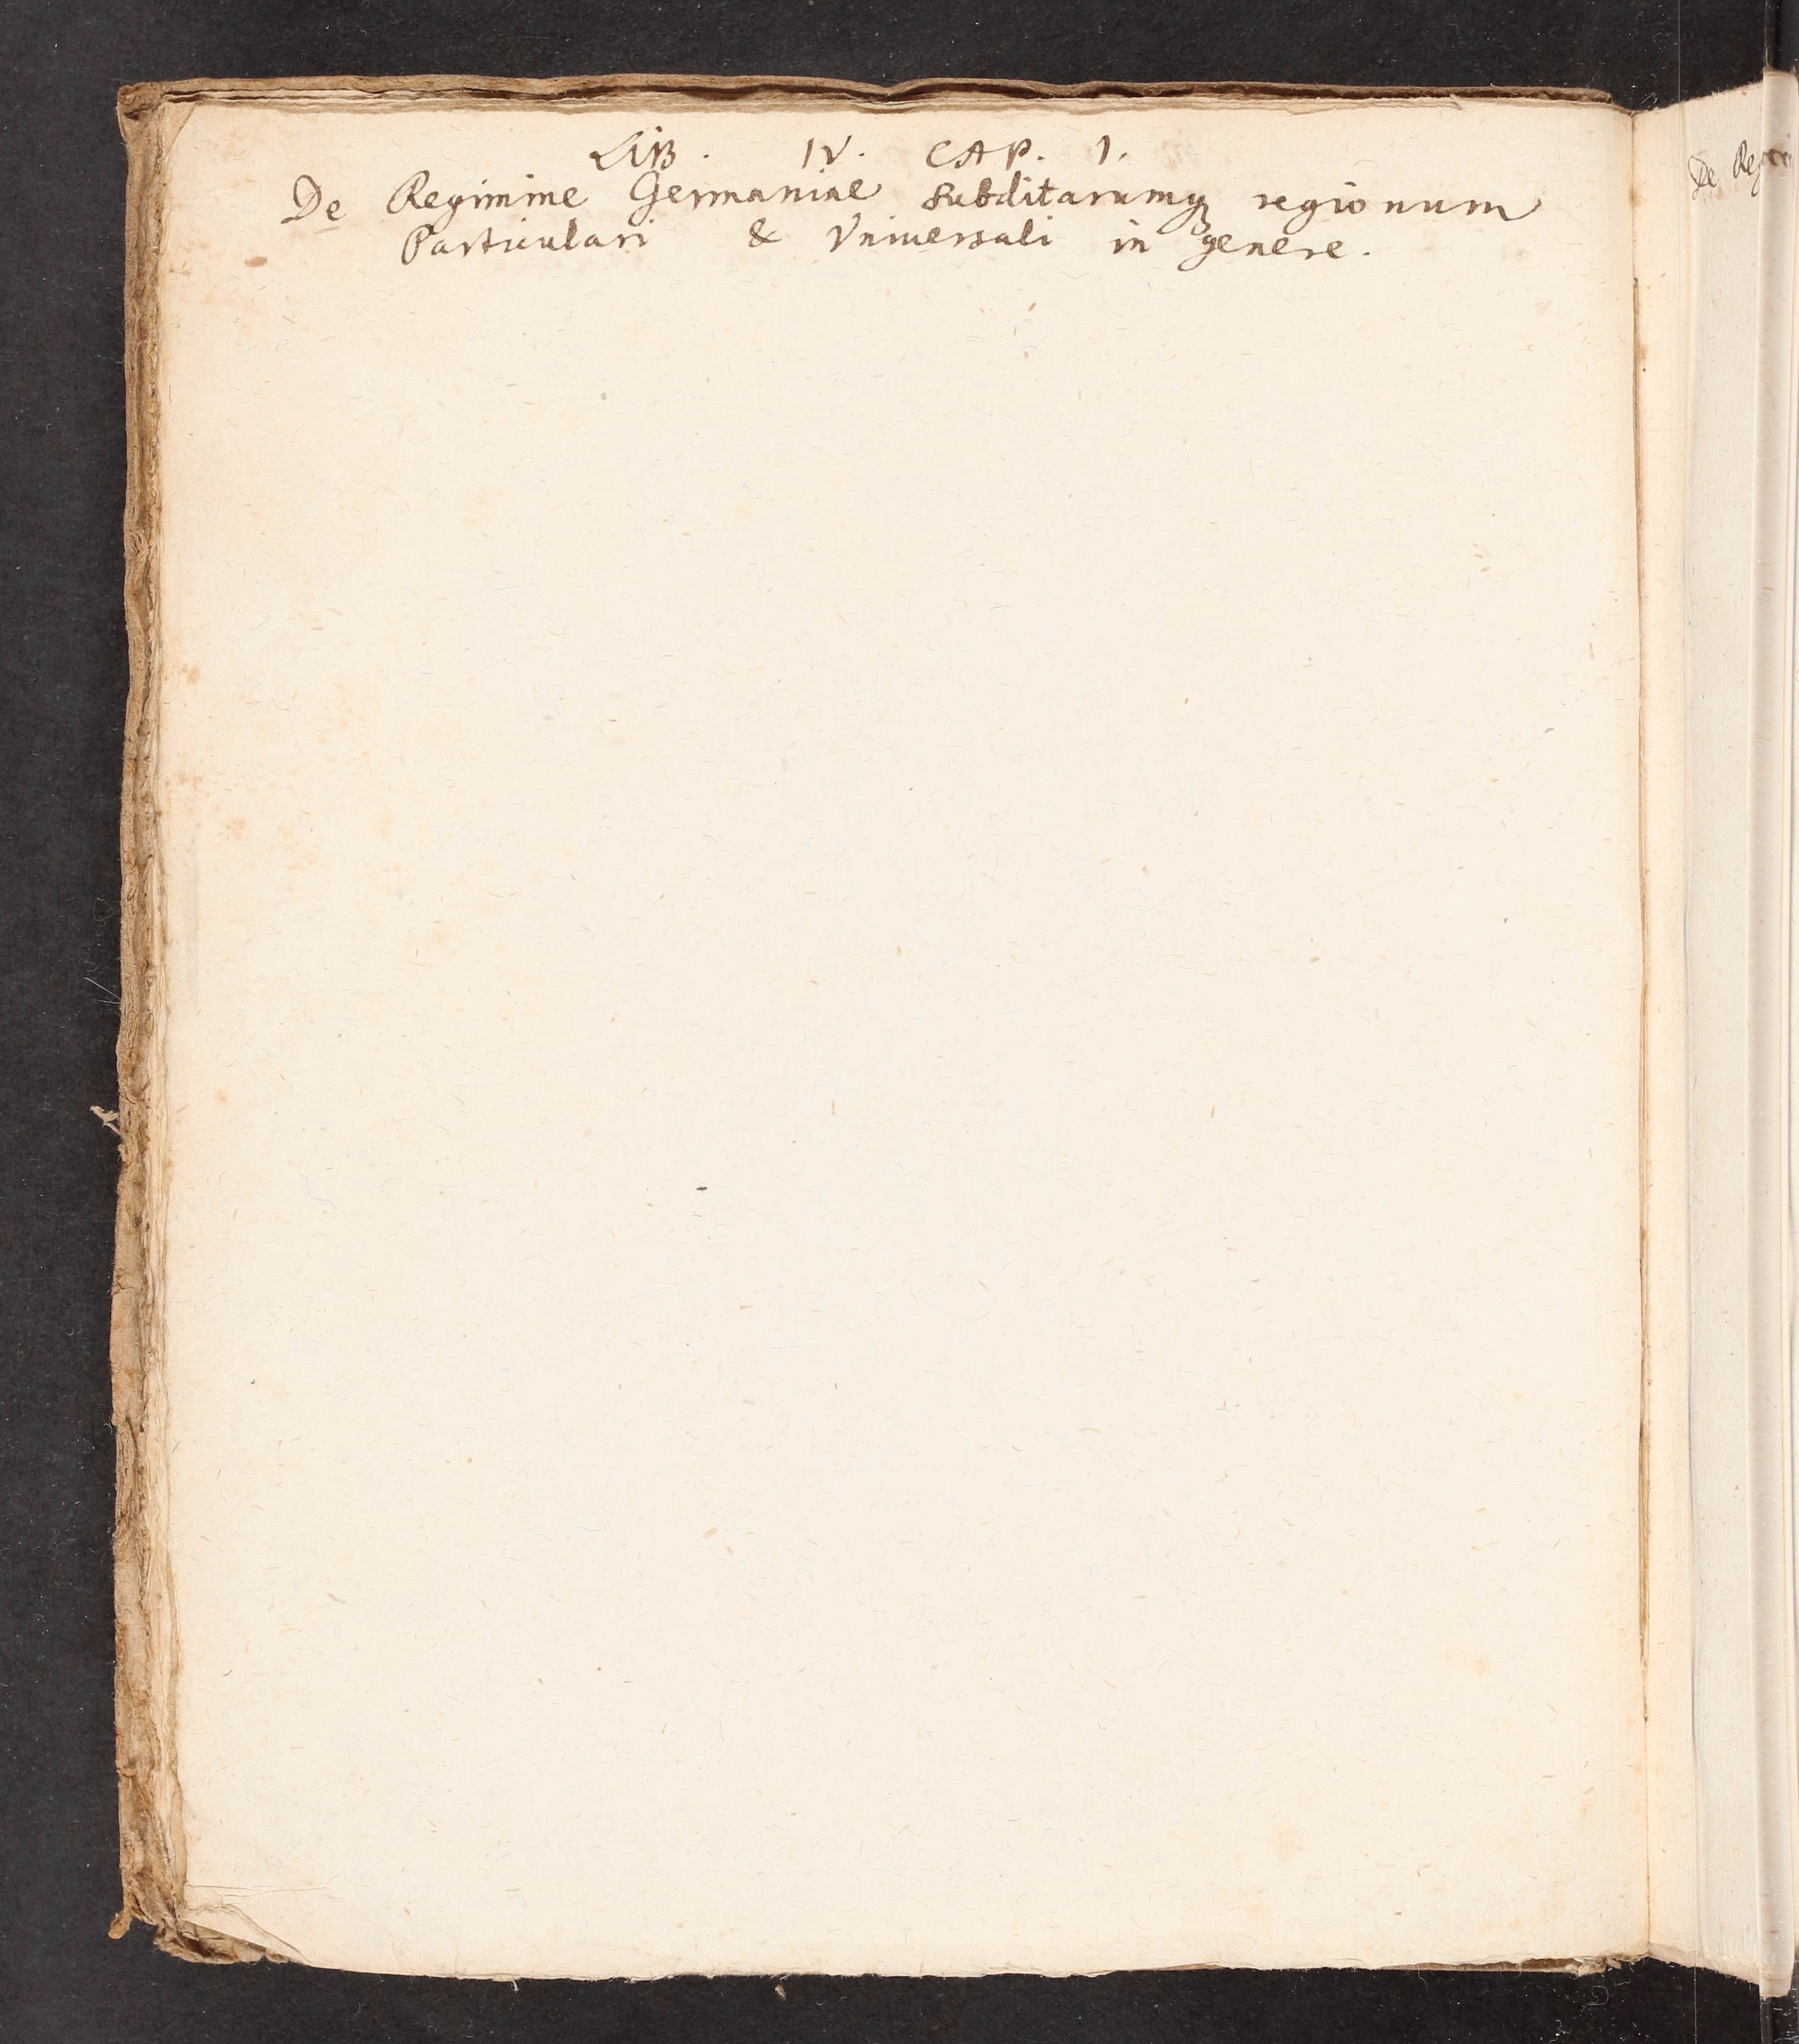 LIB. IV. CAP. I.
De Regimine Germaniae subditarumq; regionum
Particulari & Vniuersali in genere.
De Reg